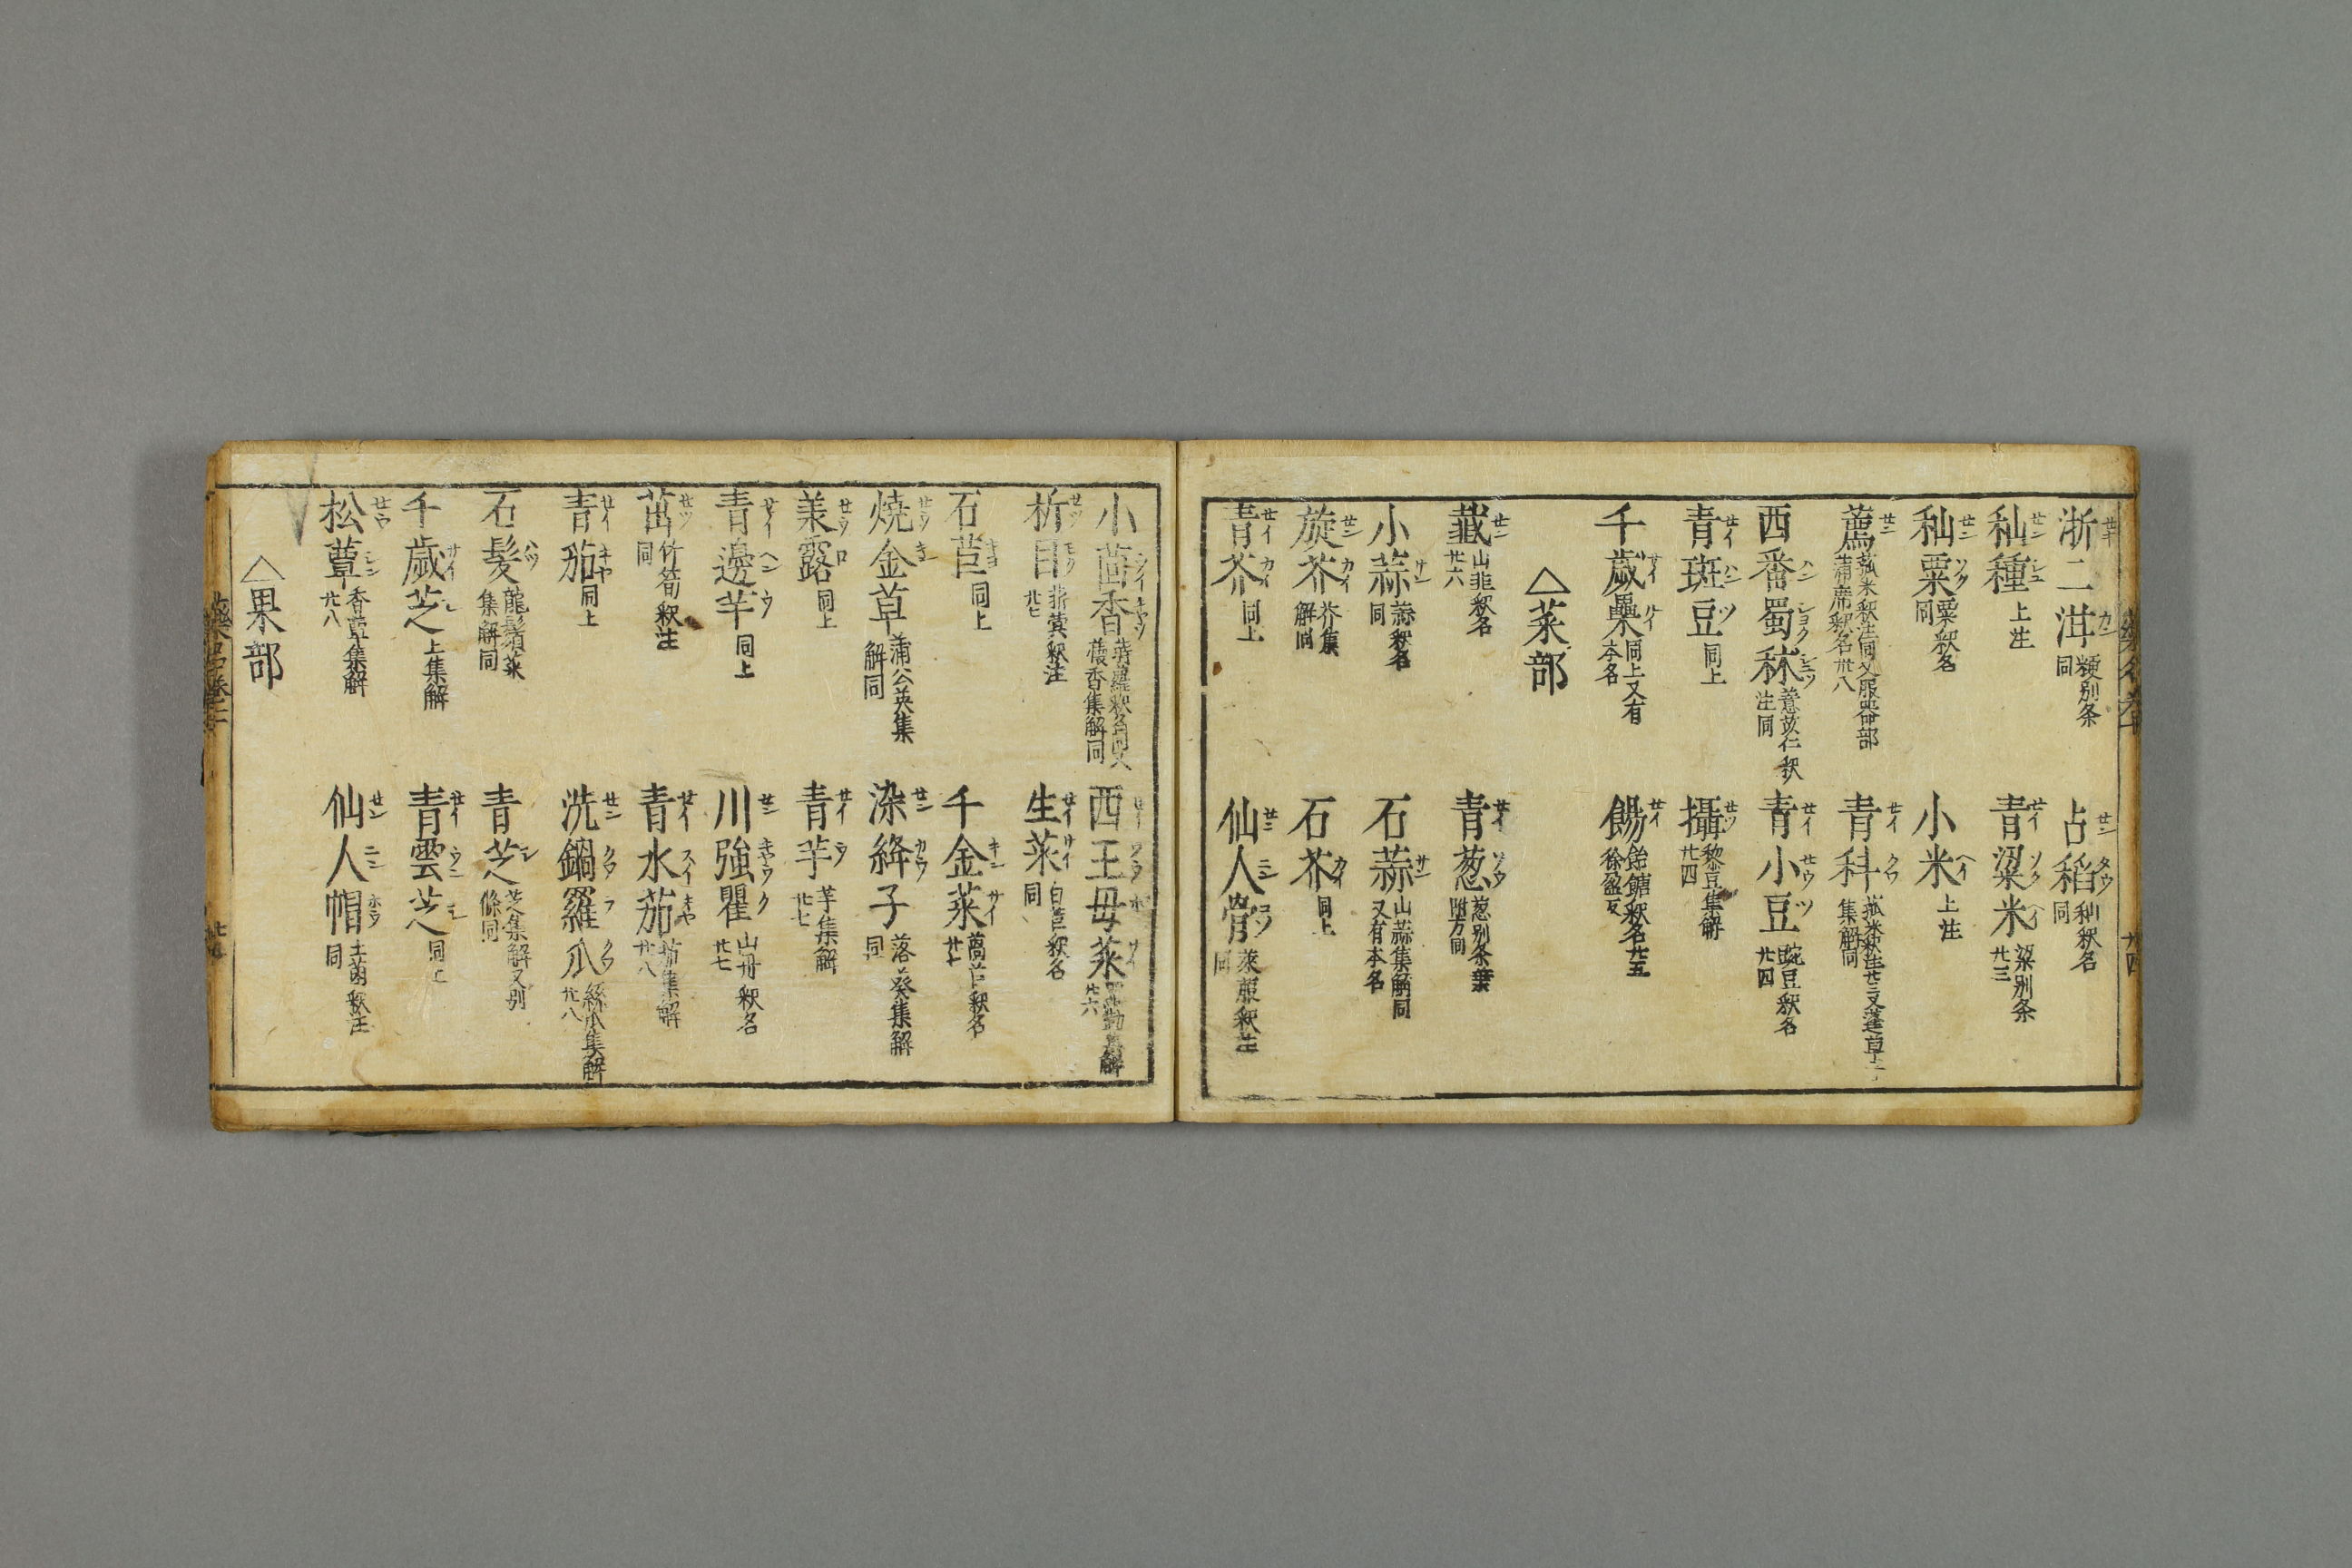 淅二泔 粳別条同
占稻 秈釈名同
秈種 上注
青粱米 粱別条廿三
秈粟 粟釈名同
小米 上注
藨 菰米釈注同又服器部蒲席釈名卅八
青科 菰米釈注廿三又蓬草子集解同
西番蜀秫 薏苡仁釈注同
青小豆 豌豆釈名廿四
青斑豆 同上
攝 黎豆集解廿四
千歳蘽 同上又有本名
餳 飴餹釈名廿五 徐盈反
△菜部
韱 山韭釈名廿六
青葱 葱別条葉附方同
小蒜 蒜釈名同
石蒜 山蒜集解同又有本名
旋芥 芥集解同
石芥 同上
青芥 同上
仙人骨 萊菔釈注同
小茴香 蒔蘿釈名同又蘹香集解同
西王母菜 羅勒集解廿六
析目 菥蓂釈注廿七
生菜 白苣釈名同
石苣 同上
千金菜 萵苣釈名廿七
燒金草 蒲公英集解同
染絳子 落葵集解同
美露 同上
青芋 芋集解廿七
青邊芋 同上
川強瞿 山丹釈名廿七
茁 竹筍釈注同
青水茄 茄集解廿八
青茄 同上
洗鍋羅瓜 絲瓜集解廿八
石髮 龍鬚菜集解同
青芝 芝集解又別條同
千歳芝 上集解
青雲芝 同上
松蕈 香蕈集解廿八
仙人帽 土菌釈注同
△果部